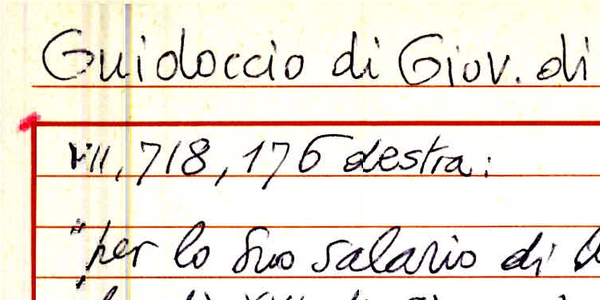 Guidoccio di Giov. di
VII, 718, 176 destra:
"per lo suo salario di